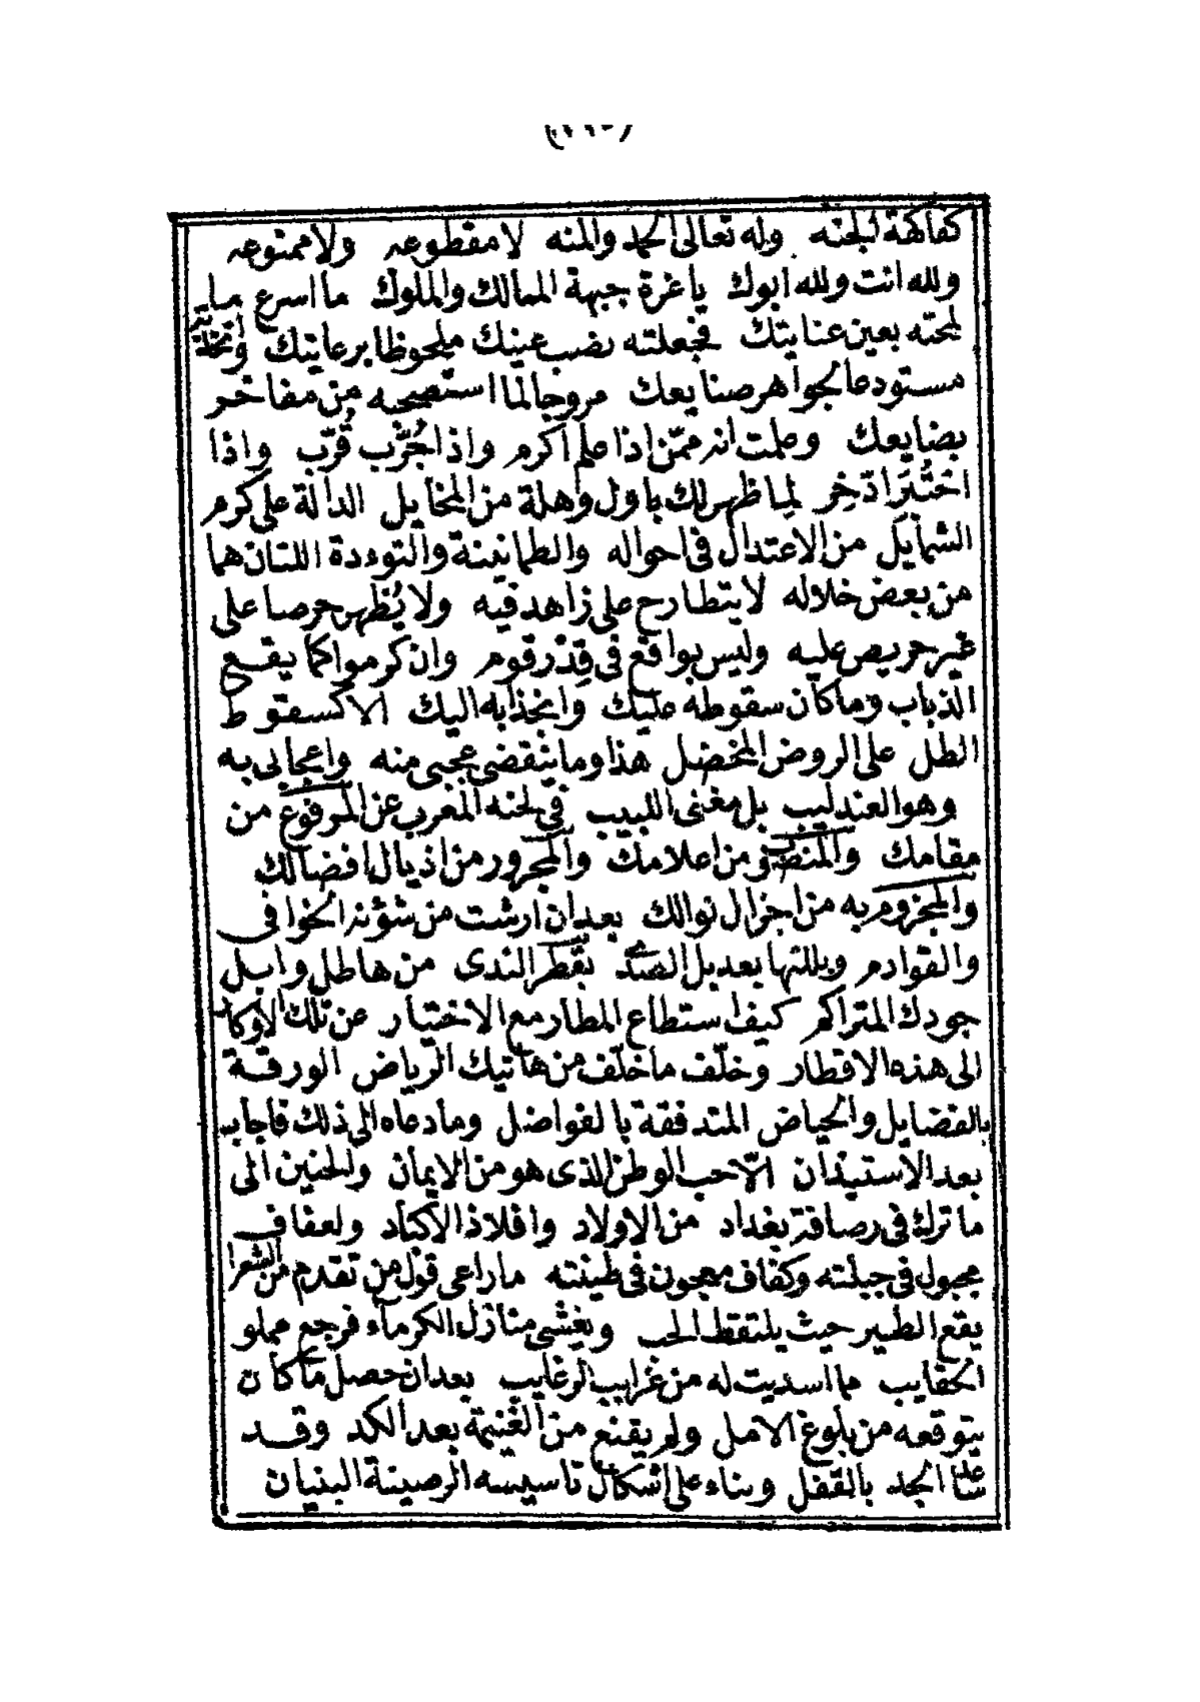 كفاكهة الجنه وله تعالى الحمد والمنه لا مقطوعه ولا ممنوعه
ولله انت ولله ابوك يا غرة جبهة الممالك والملوك ما اسرع ما
لمحته بعين عنايتك فجعلته نصب عينك ملحوظا برعايتك واتخذته
مستودعا لجواهر صنايعك مروجا لما استصحبه من مفاخر
بضايعك وعلمت انه ممّن اذا علم اكرم واذا جُرّب قُرّب واذا
اختُبِرَ ادّخِر لِما ظهر لك باول وهلة من المخايل الدالة على كرم
الشمايل من الاعتدال فى احواله والطمانينة والتوءدة اللتان هما
من بعض خلاله لا يتطارح على زاهد فيه ولا يُظهر حرصا على
غير حريص عليه وليس بواقع فى قِدْر قوم وان كرموا كما يقع
الذباب وما كان سقوطه عليك وانجذابه اليك الا كسقوط
الطل على الروض المخضل هذا وما ينقضى عجبى منه واعجابى به
وهو العندليب بل مغنى اللبيب فى لحنه المعرب عن المرفوع من
مقامك والمنصوب من اعلامك والمجرور من اذيال افضالك
والمجزوم به من اجزال نوالك بعد ان ارشت من شؤنه الخوافى
والقوادم وبللتها بعد بل الصدى بقطر الندى من هاطل وابل
جودك المتراكم كيف استطاع المطار مع الاختيار عن تلك الاوكار
الى هذه الاقطار وخلّف ما خلّف من هاتيك الرياض الورقة
بالفضايل والحياض المتدفقة بالفواضل وما دعاه الى ذلك فاجابه
بعد الاستيذان الّا حب الوطن الذى هو من الايمان والحنين الى
ما ترك فى رصافة بغداد من الاولاد وافلاذ الاكباد ولعفاف
مجبول فى جبلته وكفاف معجون فى طينته ما راعى قول من تقدم من الشعرا
يقع الطير حيث يلتقط الحب ويغشى منازل الكرماء فرجع مملو
الحقايب مما اسديت له من غرايب الرغايب بعد ان حصل ما كان
يتوقعه من بلوغ الامل ولم يقنع من الغنيمة بعد الكد وقد
الجد بالقفل وبناء على اشكال تاسيسه الرصينة البنيان